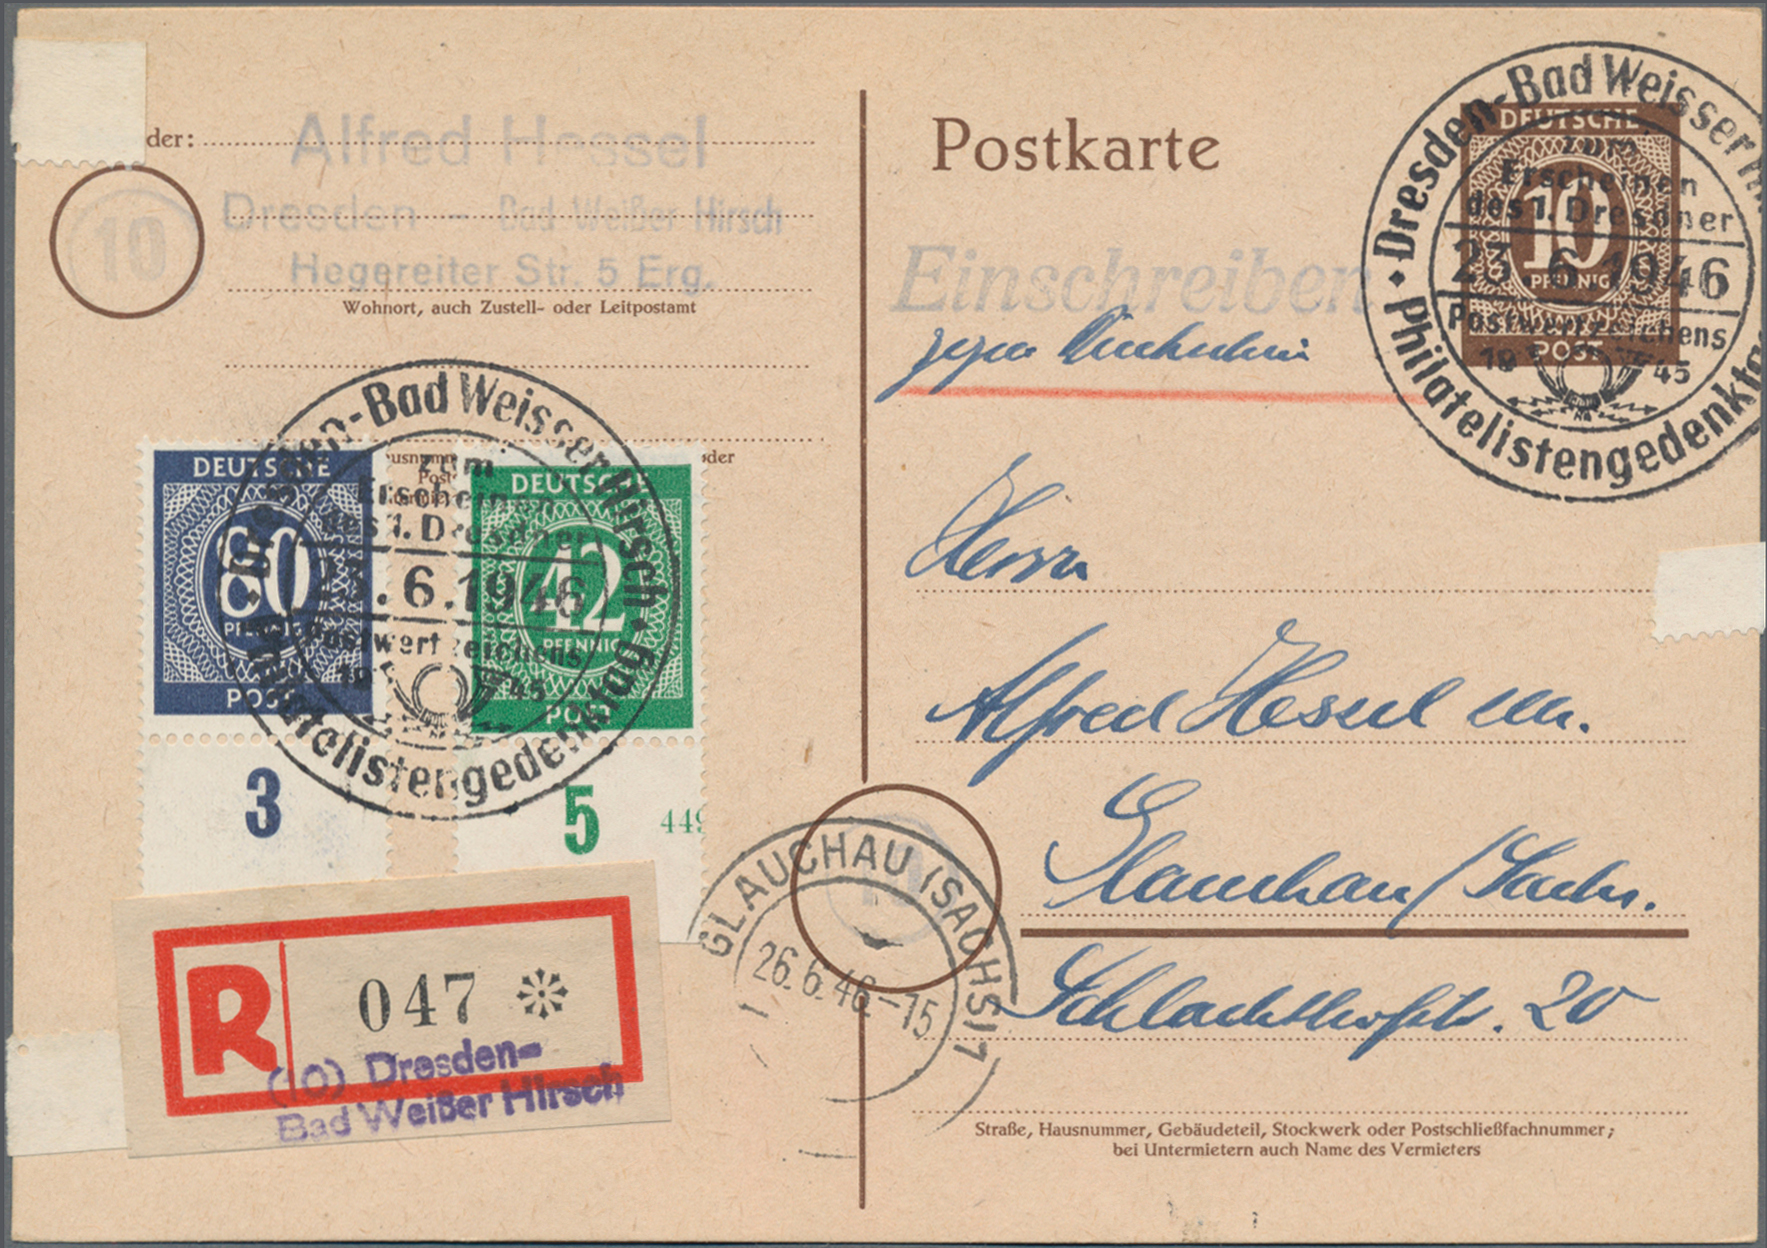 der:
Alfred Hessel
Dresden - Bad Weißer Hirsch
Hegereiter Str. 5 Erg.
10
Wohnort, auch Zustell- oder Leitpostamt
Postkarte
Einschreiben
gegen Rückschein
DEUTSCHE
10
PFENNIG
POST
Dresden-Bad Weisser
zum
Erscheinen
des 1. Dresdner
23.6.1946
Postwertzeichens
19 45
Philatelistengedenkta
DEUTSCHE
80
PFENNIG
POST
3
DEUTSCHE
42
PFENNIG
POST
5
449
der
Dresden-Bad Weisser Hirsch
zum
Erscheinen
des 1. Dresdner
23.6.1946
Postwertzeichens
19 45
Philatelistengedenktag
Herrn
Alfred Hessel
Glauchau/Sachs.
Schlachthofstr. 20
GLAUCHAU (SACHS) 1
26.6.46.-15
R
047
(10) Dresden-
Bad Weißer Hirsch
Straße, Hausnummer, Gebäudeteil, Stockwerk oder Postschließfachnummer;
bei Untermietern auch Name des Vermieters